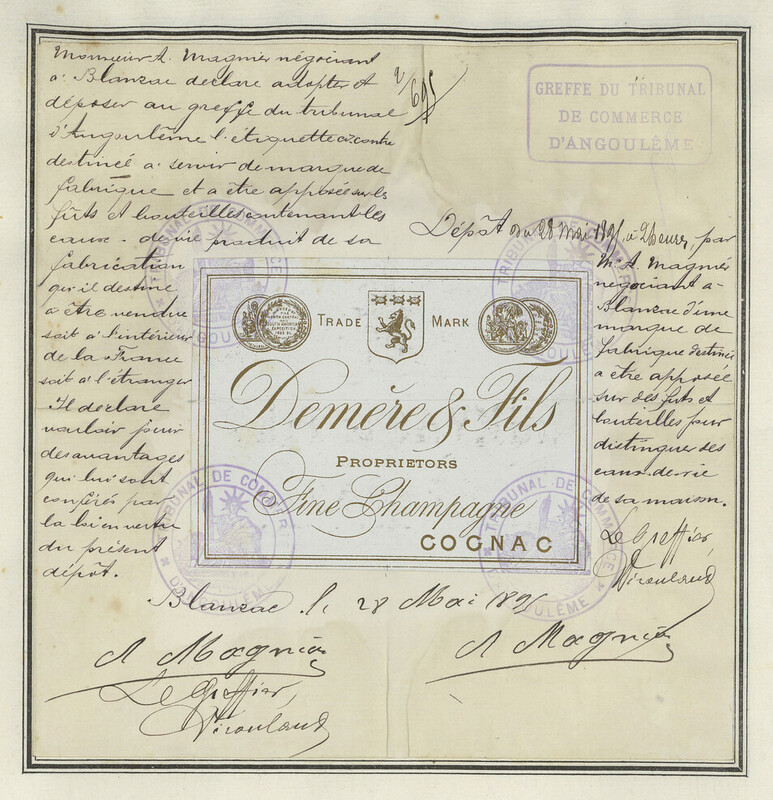 Monsieur A. Magnier négociant
à Blanzac déclare adopter et
déposer au greffe du tribunal
d'Angoulême l'étiquette ci-contre
destinée à servir de marque de
fabrique et à être apposée sur les
fûts et bouteilles contenant les
eaux-de-vie produit de sa
fabrication
qu'il destine
à être vendue
soit à l'intérieur
de la France
soit à l'étranger
Il déclare
vouloir jouir
des avantages
qui lui sont
conférés par
la loi en vertu
du présent
dépôt.
695
GREFFE DU TRIBUNAL
DE COMMERCE
D'ANGOULÊME
Dépôt du 28 Mai 1895, à 2 heures, par
Mr A. Magnier
négociant à
Blanzac d'une
marque de
fabrique destinée
à être apposée
sur des fûts et
bouteilles pour
distinguer des
eaux-de-vie
de sa maison.
Le Greffier,
TRADE MARK
Demère & Fils
PROPRIETORS
Fine Champagne
COGNAC
TRIBUNAL DE COMMERCE
D'ANGOULÊME
TRIBUNAL DE COMMERCE
D'ANGOULÊME
TRIBUNAL DE COMMERCE
D'ANGOULÊME
TRIBUNAL DE COMMERCE
D'ANGOULÊME
Blanzac le 28 Mai 1895
A Magnier
A Magnier
Le Greffier,